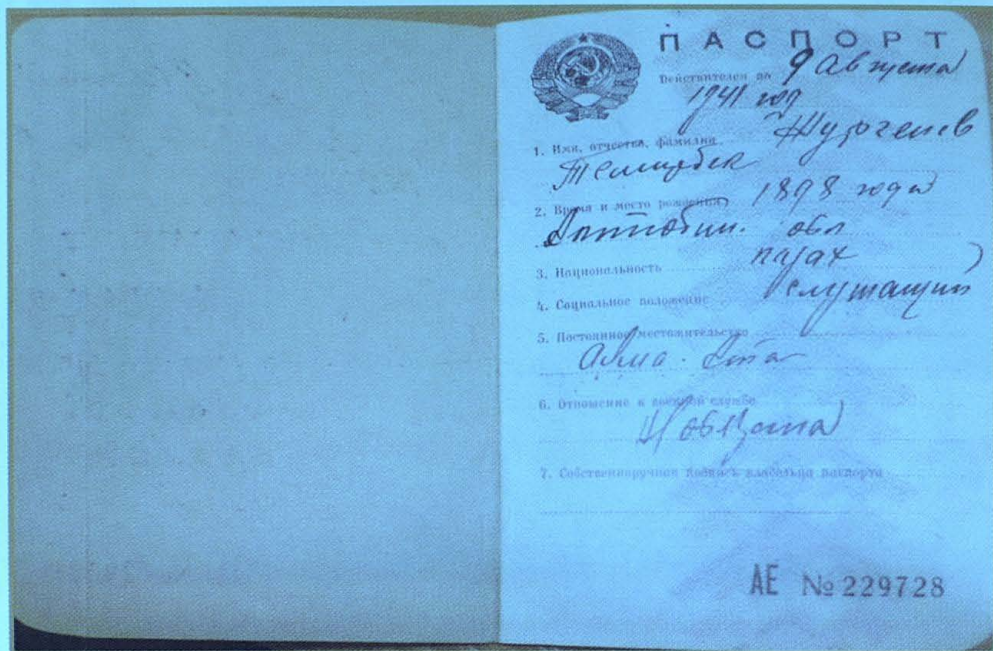 ПАСПОРТ
Действителен по 9 Августа
1941 год
1. Имя, отчество, фамилия Жургенев
Темирбек
2. Время и место рождения 1898 года
Актюбин. обл
3. Национальность казах
4. Социальное положение служащий
5. Постоянное местожительство
Алма-Ата
6. Отношение к военной службе
7. Собственноручная подпись владельца паспорта
АЕ № 229728